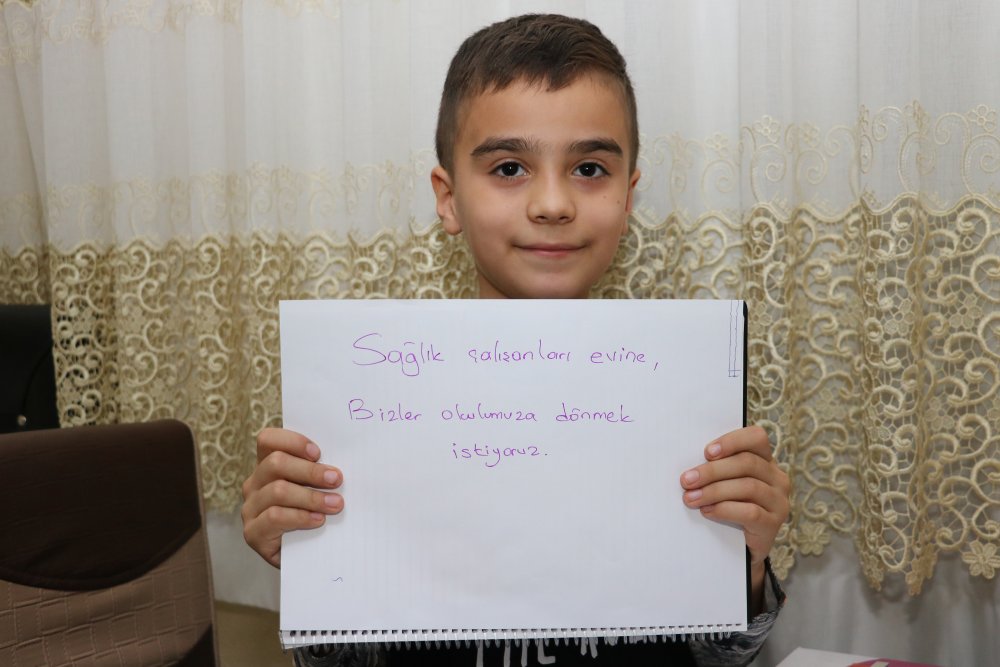 Sağlık çalışanları evine,
Bizler okulumuza dönmek
istiyoruz.